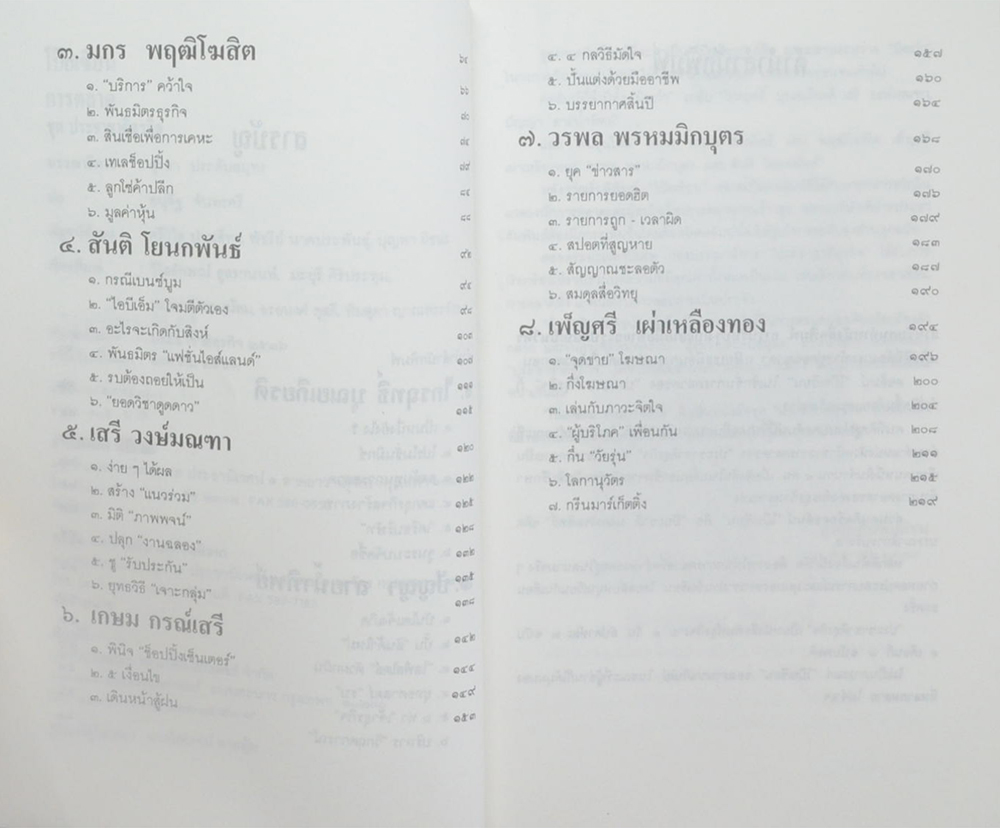 ๓. มกร พฤฒิโฆสิต
๑. “บริการ” คว้าใจ
๒. พันธมิตรธุรกิจ
๓. สินเชื่อเพื่อการเคหะ
๔. เทเลช็อปปิ้ง
๕. ลูกโซ่ค้าปลีก
๖. มูลค่าหุ้น
๔. สันติ โยนกพันธ์
๑. กรณีเบนซ์บูม
๒. “ไอบีเอ็ม” โจมตีตัวเอง
๓. อะไรจะเกิดกับสิงห์
๔. พันธมิตร “แฟชั่นไอส์แลนด์”
๕. รบต้องถอยให้เป็น ๑๑๑
๖. “ยอดวิชาดูดดาว” ๑๑๕
๕. เสรี วงษ์มณฑา ๑๒๐
๑. ง่าย ๆ ได้ผล ๑๒๒
๒. สร้าง “แนวร่วม” ๑๒๕
๓. มิติ “ภาพพจน์” ๑๒๘
๔. ปลุก “งานฉลอง” ๑๓๒
๕. ชู “รับประกัน” ๑๓๕
๖. ยุทธวิธี “เจาะกลุ่ม” ๑๓๘
๖. เกษม กรณ์เสรี ๑๔๒
๑. พินิจ “ช็อปปิ้งเซ็นเตอร์” ๑๔๔
๒. ๕ เงื่อนไข ๑๔๙
๓. เดินหน้าสู้ฝน ๑๕๓
๔. ๔ กลวิธีมัดใจ ๑๕๗
๕. ปั้นแต่งด้วยมืออาชีพ ๑๖๐
๖. บรรยากาศสิ้นปี ๑๖๔
๗. วรพล พรหมมิกบุตร ๑๖๘
๑. ยุค “ข่าวสาร” ๑๗๐
๒. รายการยอดฮิต ๑๗๖
๓. รายการถูก - เวลาผิด ๑๗๙
๔. สปอตที่สูญหาย ๑๘๓
๕. สัญญาณชะลอตัว ๑๘๗
๖. สมดุลสื่อวิทยุ ๑๙๐
๘. เพ็ญศรี เผ่าเหลืองทอง ๑๙๔
๑. “จุดขาย” โฆษณา ๑๙๖
๒. กึ่งโฆษณา ๒๐๐
๓. เล่นกับภาวะจิตใจ ๒๐๔
๔. “ผู้บริโภค” เพื่อนกัน ๒๐๘
๕. กื่น “วัยรุ่น” ๒๑๑
๖. โลกานุวัตร ๒๑๕
๗. กรีนมาร์เก็ตติ้ง ๒๑๙